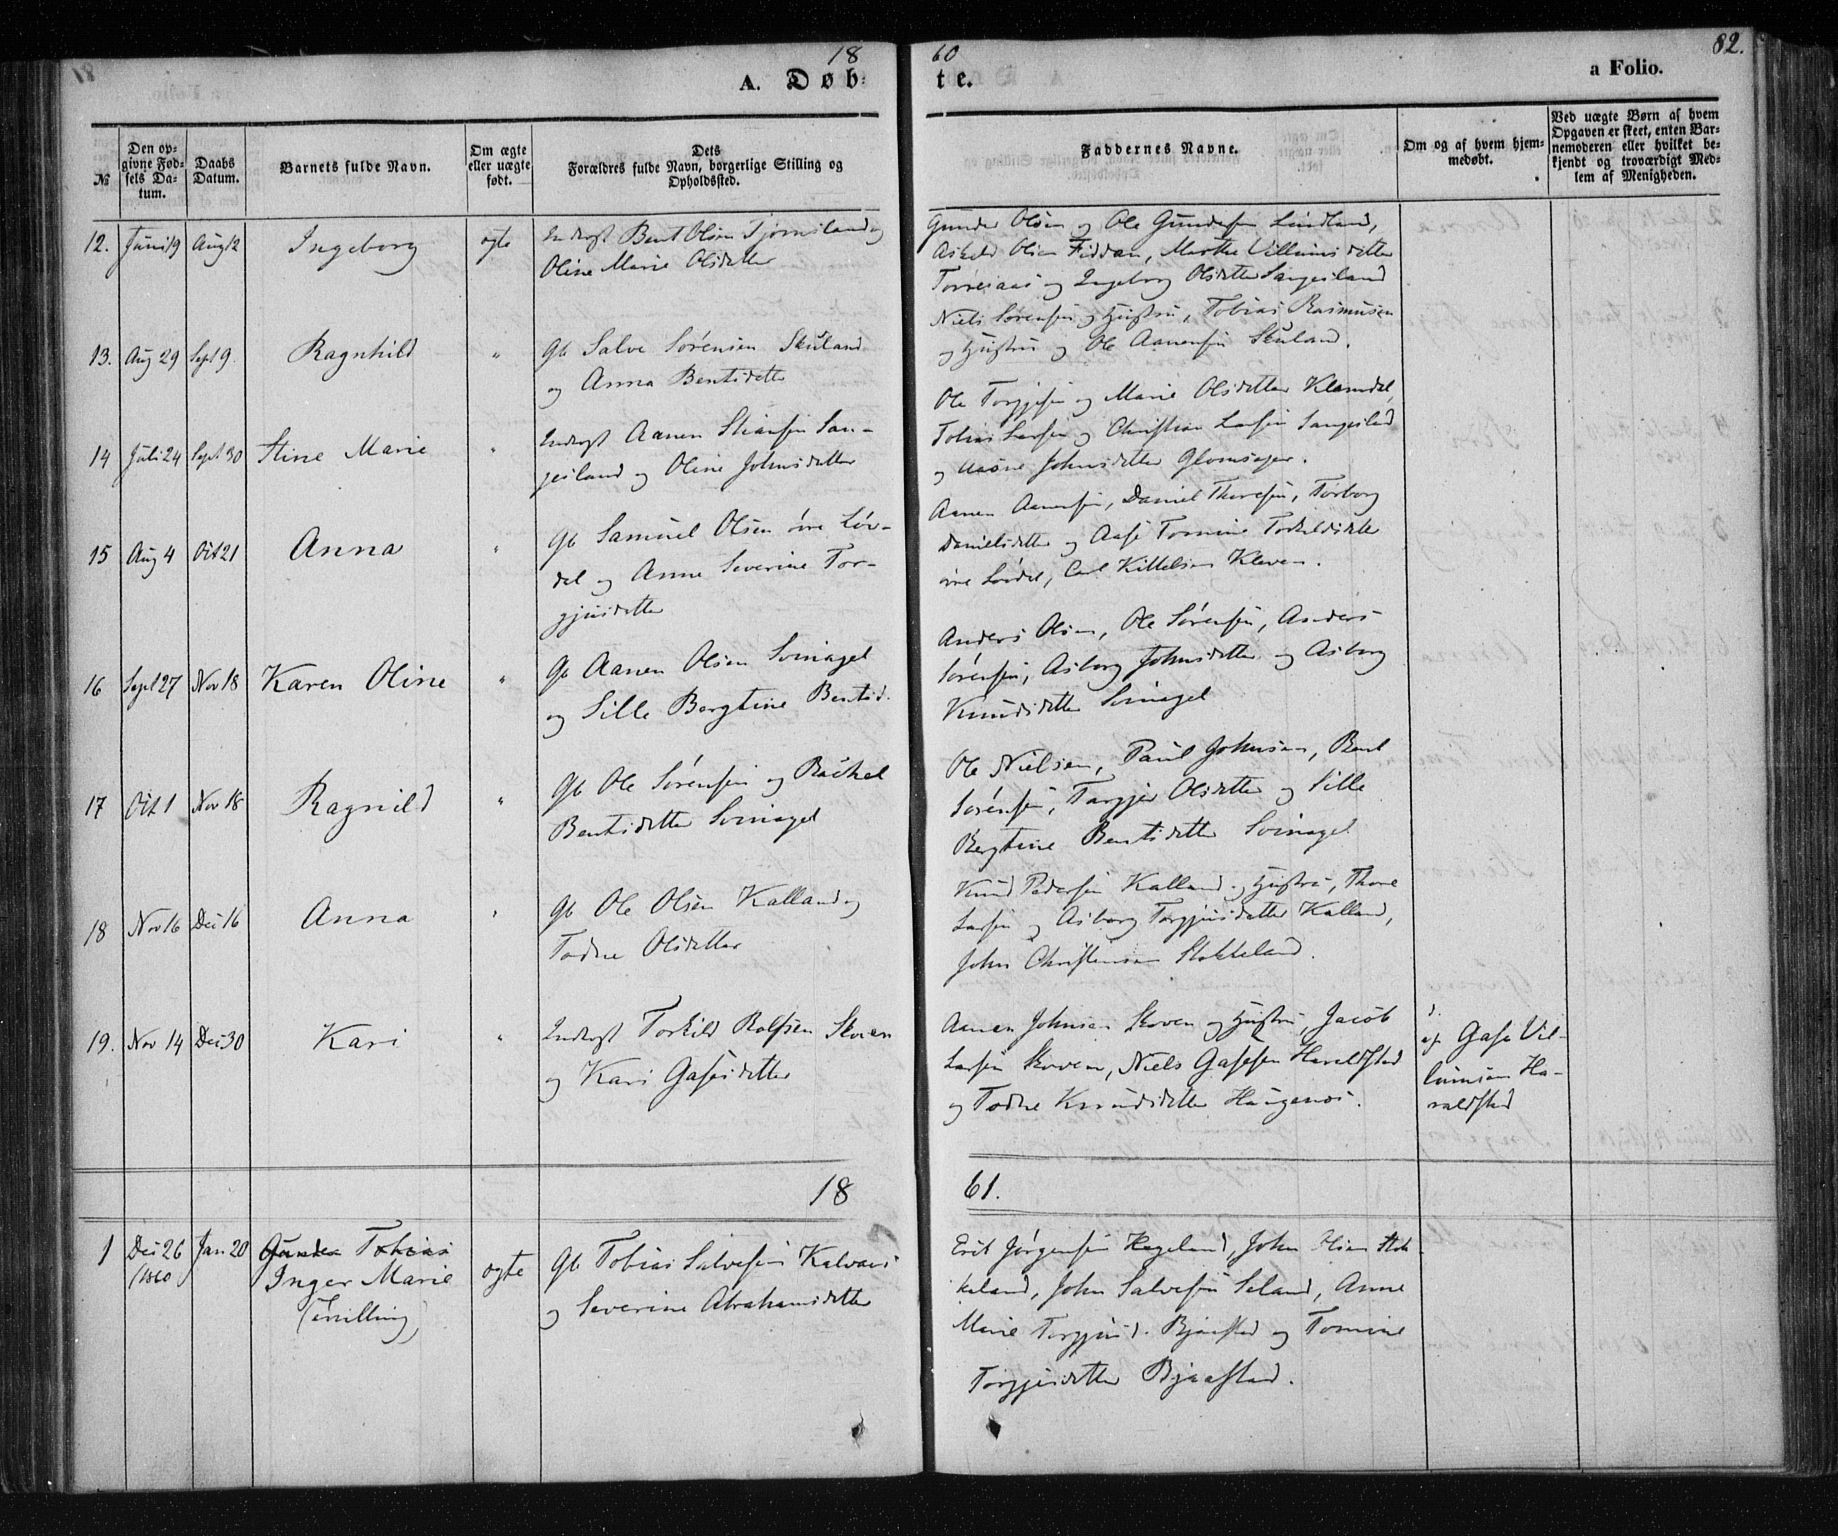 18 60
82.
A. Døb-
te.
a Folio.
№
Den op-
givne Fød-
sels Da-
tum.
Daabs
Datum.
Barnets fulde Navn.
Om ægte
eller uægte
født.
Dets
Forældres fulde Navn, borgerlige Stilling og
Opholdssted.
Faddernes Navne.
Om og af hvem hjem-
medøbt.
Ved uægte Børn af hvem
Opgaven er skeet, enten Bar-
nemoderen eller hvilket be-
kjendt og troværdigt Med-
lem af Menigheden.
12. Juni 19 Aug 12 Ingeborg ægte Indregt Bent Olsen Tjomsland og
Oline Marie Olsdatter
Gunder Olsen og Ole Gundersen Lindland,
Olsen Fiddan, Marthe Villumsdatter
og Ingeborg Olsdatter Sangesland
13. Aug 29 Sept 9. Ragnhild " Gb Salve Sørensen Skuland
og Anna Bentsdatter
Niels Sørensen og Hustru, Tobias Rasmusen
og Hustru og Ole Aanensen Skuland.
14 Juli 24 Sept 30 Stine Marie " Indregt Aanen Stiansen San-
gesland og Oline Johnsdatter
Ole Torgjesen og Marie Olsdatter Kleundel,
Tobias Larsen og Christian Larsen Sangesland
og Johnsdatter
15 Aug 4 Oct 21 Anna " Gb Samuel Olsen øvre Løv-
del og Anne Severine Tor-
gjusdatter
Aanen Aanensen, Daniel Thoresen, Torborg
Danielsdatter og Aase Tomine Torkildsdatter
øvre Løvdel, Carl Kittelsen Kleven.
16 Sept 27 Nov 18 Karen Oline " Gb Aanen Olsen Svinagel
og Sille Bergtine Bentsd.
Anders Olsen, Ole Sørensen, Anders
Sørensen, Asborg Johnsdatter og Asborg
Knudsdatter Svinagel
17 Oct 1 Nov 18 Ragnild " Gb Ole Sørensen og Rachel
Bentsdatter Svinagel
Ole Nielsen, Paul Johnsen, Bent
Sørensen, Torgjer Olsdatter og Sille
Bergtine Bentsdatter Svinagel
18 Nov 16 Dec 16 Anna " Gb Ole Olsen Kalland og
Todne Olsdatter
Knud Pedersen Kalland og Hustru, Thore
Larsen og Asborg Torgjusdatter Kalland,
John Christensen Stokkeland.
19. Nov 14 Dec 30 Kari " Indregt Torkild Rolfsen Skoven
og Kari Gasesdatter
Aanen Johnsen Skoven og Hustru, Jacob
Larsen Skoven, Niels Gasesen Haraldstad
og Todne Knudsdatter Haugenes.
af Gase Vil-
lumsen Ha-
raldstad
18 61.
1 Dec 26 Jan 20 Gunder Tobias
1860 Inger Marie
(tvilling)
ægte Gb Tobias Salvesen Kalvaas
og Severine Abrahamsdatter
Erik Jørgensen Hageland, John Olsen Stok-
keland, John Salvesen Seland, Anne
Marie Torgjusd. Bjaastad og Tomine
Torgjusdatter Bjaastad.